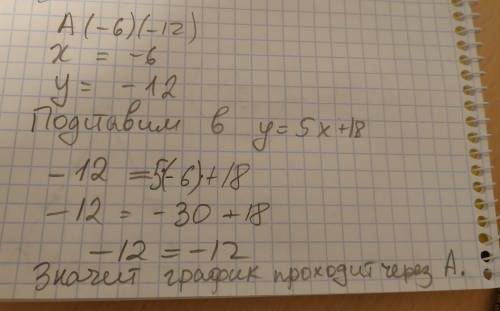 A(-6)(-12)
x = -6
y = -12
Подставим в y=5x+18
-12 =5(-6)+18
-12 = -30+18
-12=-12
Значит график проходит через А.